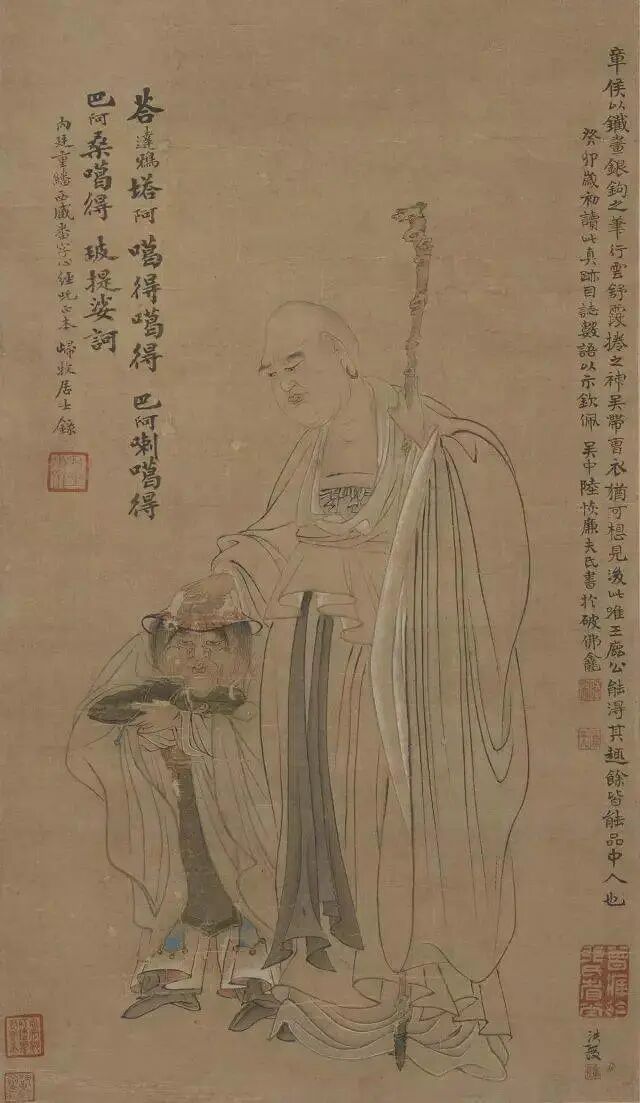 章侯以鐵畫銀鉤之筆行雲舒霞捲之神吳帶曹衣猶可想見後此唯王鹿公能淂其趣餘皆能品中人也
癸卯歲初讀此真跡因誌數語以示欽佩 吳中陸恢廉夫氏書於破佛龕
洪綬
荅達鴉塔阿 噶得噶得 巴阿喇噶得
巴阿桑噶得 玻提娑訶
內廷重繙西藏番字心經咒正本 歸牧居士錄